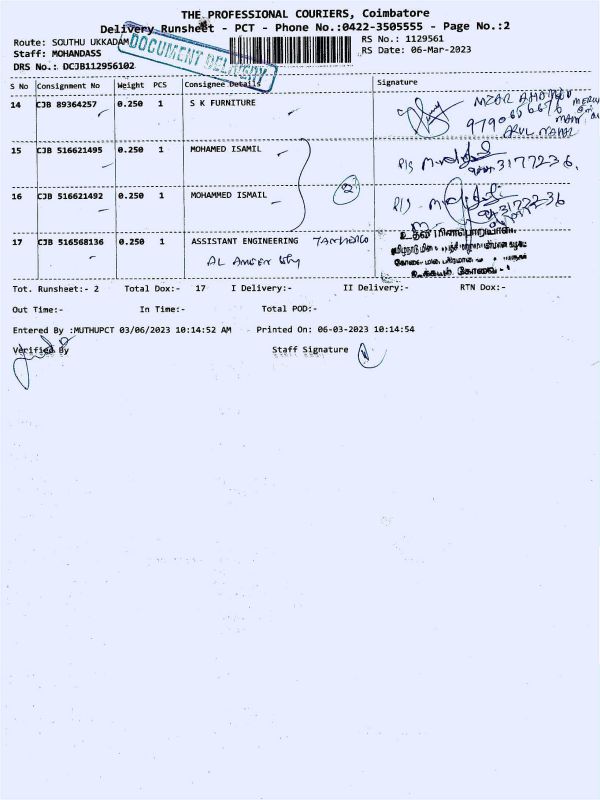 THE PROFESSIONAL COURIERS, Coimbatore
Delivery Runsheet - PCT - Phone No.:0422-3505555 - Page No.:2
Route: SOUTHU UKKADAM
DOCUMENT DELIVERY
RS No.: 1129561
Staff: MOHANDASS
RS Date: 06-Mar-2023
DRS No.: DCJB112956102
S No Consignment No Weight PCS Consignee Details Signature
14 CJB 89364257 0.250 1 S K FURNITURE
15 CJB 516621495 0.250 1 MOHAMED ISAMIL
3177236.
16 CJB 516621492 0.250 1 MOHAMMED ISMAIL 2
3177236
17 CJB 516568136 0.250 1 ASSISTANT ENGINEERING
உதவி மின்பொறியாளர்
Tot. Runsheet:- 2 Total Dox:- 17 I Delivery:- II Delivery:- RTN Dox:-
Out Time:- In Time:- Total POD:-
Entered By :MUTHUPCT 03/06/2023 10:14:52 AM Printed On: 06-03-2023 10:14:54
Verified By Staff Signature